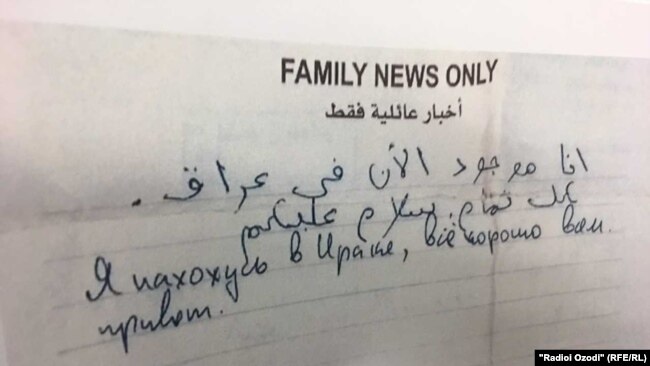 FAMILY NEWS ONLY
أخبار عائلية فقط
انا موجود الأن في عراق.
كل تمام. سلام عليكم
Я нахохусь в Ираке, всё хорошо вам
привет.
"Radioi Ozodi" (RFE/RL)